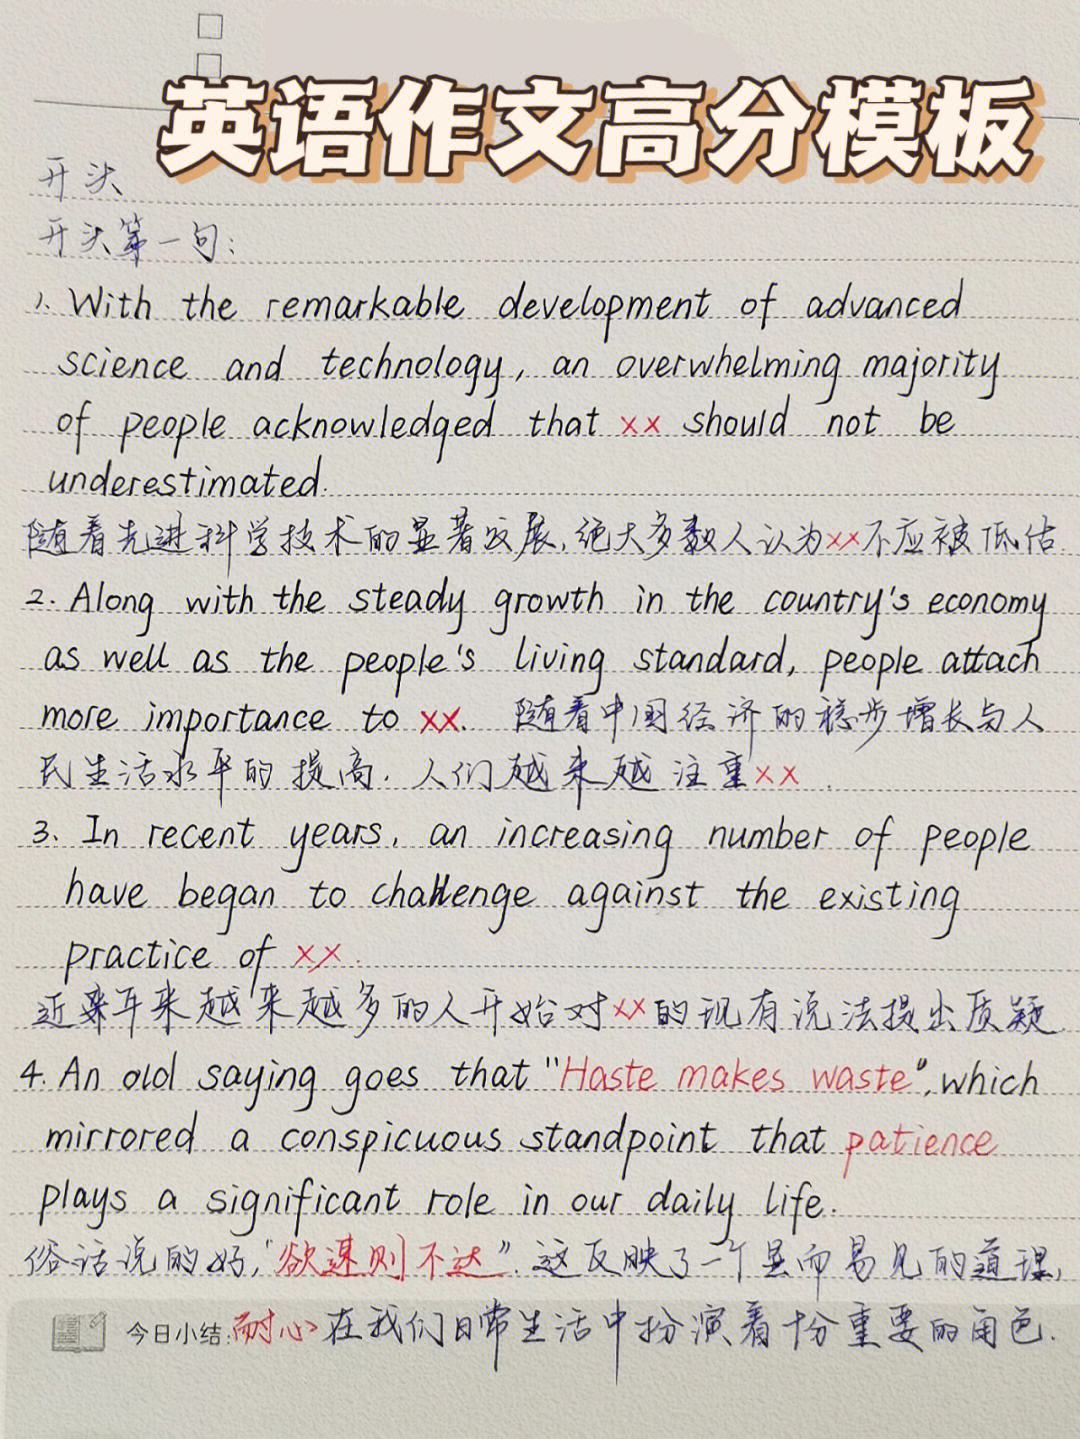 英语作文高分模板
开头
开头第一句:
1. With the remarkable development of advanced
science and technology, an overwhelming majority
of people acknowledged that xx should not be
underestimated.
随着先进科学技术的显著发展,绝大多数人认为xx不应被低估.
2. Along with the steady growth in the country's economy
as well as the people's living standard, people attach
more importance to xx. 随着中国经济的稳步增长与人
民生活水平的提高. 人们越来越注重xx.
3. In recent years, an increasing number of people
have began to challenge against the existing
practice of xx.
近来年来越来越多的人开始对xx的现有说法提出质疑.
4. An old saying goes that "Haste makes waste", which
mirrored a conspicuous standpoint that patience
plays a significant role in our daily life.
俗话说的好,"欲速则不达". 这反映了一个显而易见的道理,
今日小结:耐心在我们日常生活中扮演着十分重要的角色.